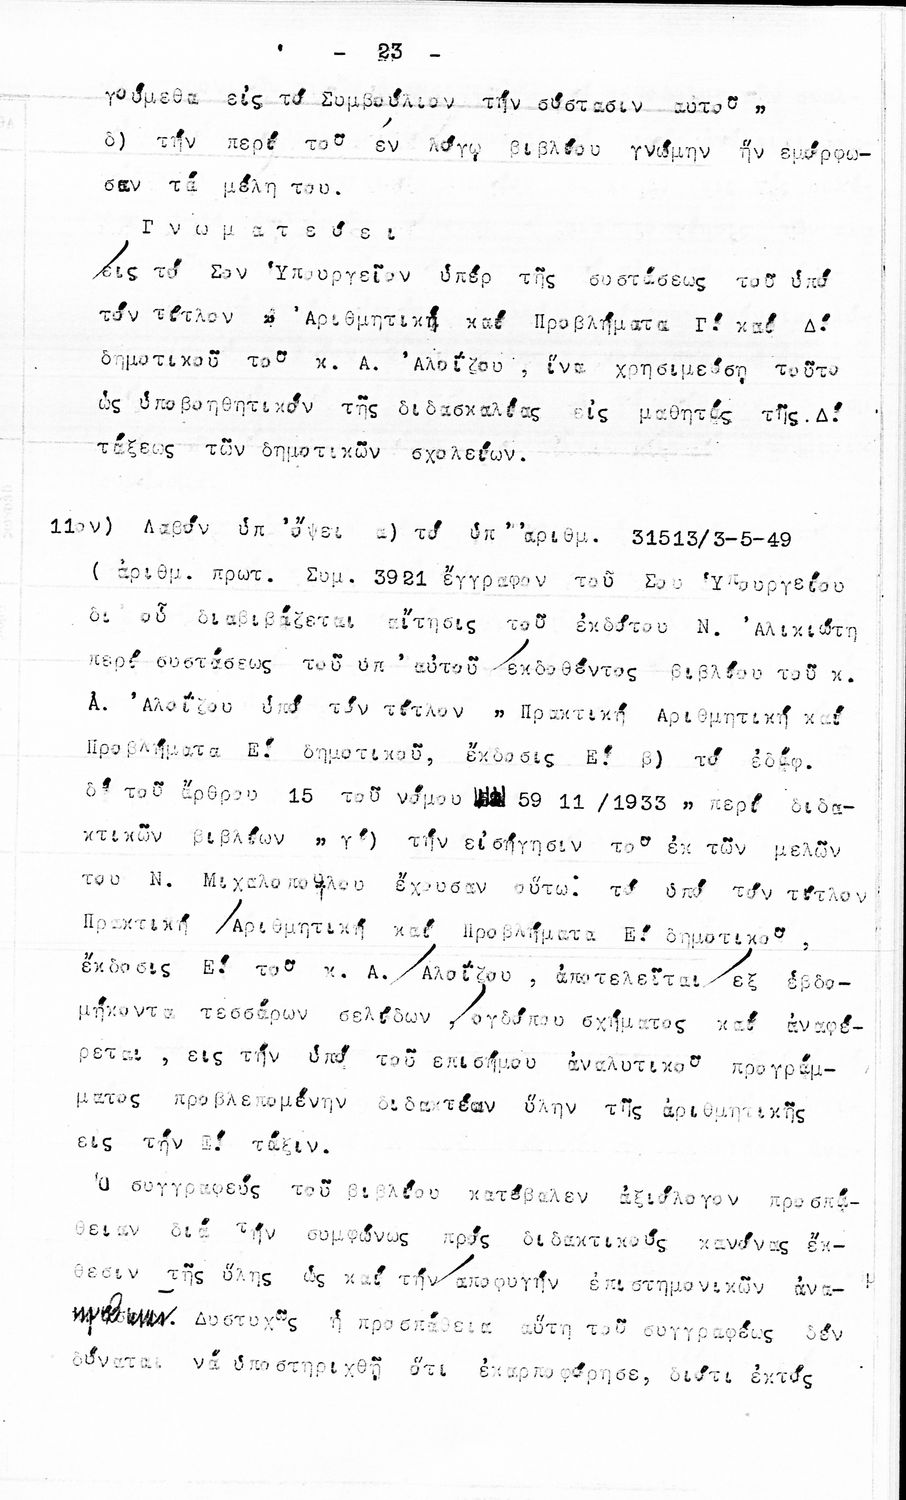 - 23 -
γούμεθα εἰς τό Συμβούλιον τήν σύστασιν αὐτοῦ „
δ) τήν περί τοῦ ἐν λόγῳ βιβλίου γνώμην ἥν εμόρφω-
σαν τά μέλη του.
Γ ν ω μ α τ ε ύ ε ι
εἰς τό Σον Ὑπουργεῖον ὑπέρ τῆς συστάσεως τοῦ ὑπό
τόν τίτλον „ Ἀριθμητική καί Προβλήματα Γ! καί Δ!
δημοτικοῦ τοῦ κ. Α. Ἀλοΐζου , ἵνα χρησιμεύσῃ τοῦτο
ὡς ὑποβοηθητικόν τῆς διδασκαλίας εἰς μαθητάς τῆς.Δ!
τάξεως τῶν δημοτικῶν σχολείων.
11ον) Λαβόν ὑπ 'ὄψει α) τό ὑπ' ἀριθμ. 31513/3-5-49
( ἀριθμ. πρωτ. Συμ. 3921 ἔγγραφον τοῦ Σου Ὑπουργείου
δι' οὗ διαβιβάζεται αἴτησις τοῦ ἐκδότου Ν. Ἀλικιώτη
περί συστάσεως τοῦ ὑπ 'αὐτοῦ ἐκδοθέντος βιβλίου τοῦ κ.
Α. Ἀλοΐζου ὑπό τόν τίτλον „ Πρακτική Αριθμητική καί
Προβλήματα Ε! δημοτικοῦ, ἔκδοσις Ε! β) τό ἐδάφ.
δ' τοῦ ἄρθρου 15 τοῦ νόμου 59 11 /1933 „ περί διδα-
κτικῶν βιβλίων „ γ') τήν εἰσήγησιν τοῦ ἐκ τῶν μελῶν
του Ν. Μιχαλοπούλου ἔχουσαν οὕτω: τό ὑπό τόν τίτλον
Πρακτική Ἀριθμητική καί Προβλήματα Ε! δημοτικοῦ ,
ἔκδοσις Ε! τοῦ κ. Α. Ἀλοΐζου , ἀποτελεῖται ἐξ ἑβδο-
μήκοντα τεσσάρων σελίδων , ὀγδόου σχήματος καί ἀναφέ-
ρεται , εις τήν ὑπό τοῦ επισήμου ἀναλυτικοῦ προγράμ-
ματος προβλεπομένην διδακτέαν ὕλην τῆς ἀριθμητικῆς
εις τήν Ε! τάξιν.
Ὁ συγγραφεύς τοῦ βιβλίου κατέβαλεν ἀξιόλογον προσπά-
θειαν διά τήν συμφώνως πρός διδακτικούς κανόνας ἔκ-
θεσιν τῆς ὕλης ὡς καί τήν ἀποφυγήν ἐπιστημονικῶν ἀνα-
Δυστυχῶς ἡ προσπάθεια αὕτη τοῦ συγγραφέως δέν
δύναται νά ὑποστηριχθῇ ὅτι ἐκαρποφόρησε, διότι ἐκτός